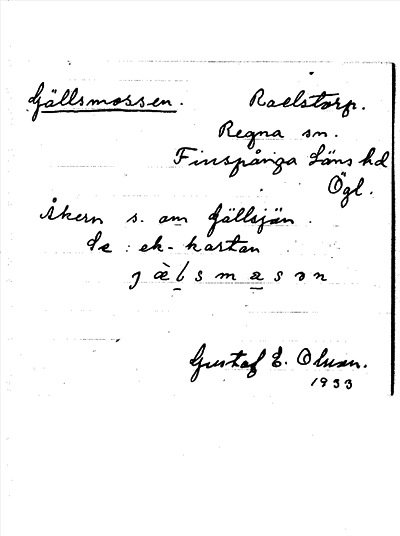 Gällsmossen. Raelstorp.
Regna sn.
Finspånga Läns hd
Ögl.
Åkern s. om Gällsjön.
Se: ek-kartan
Gustaf E. Olsson.
1933